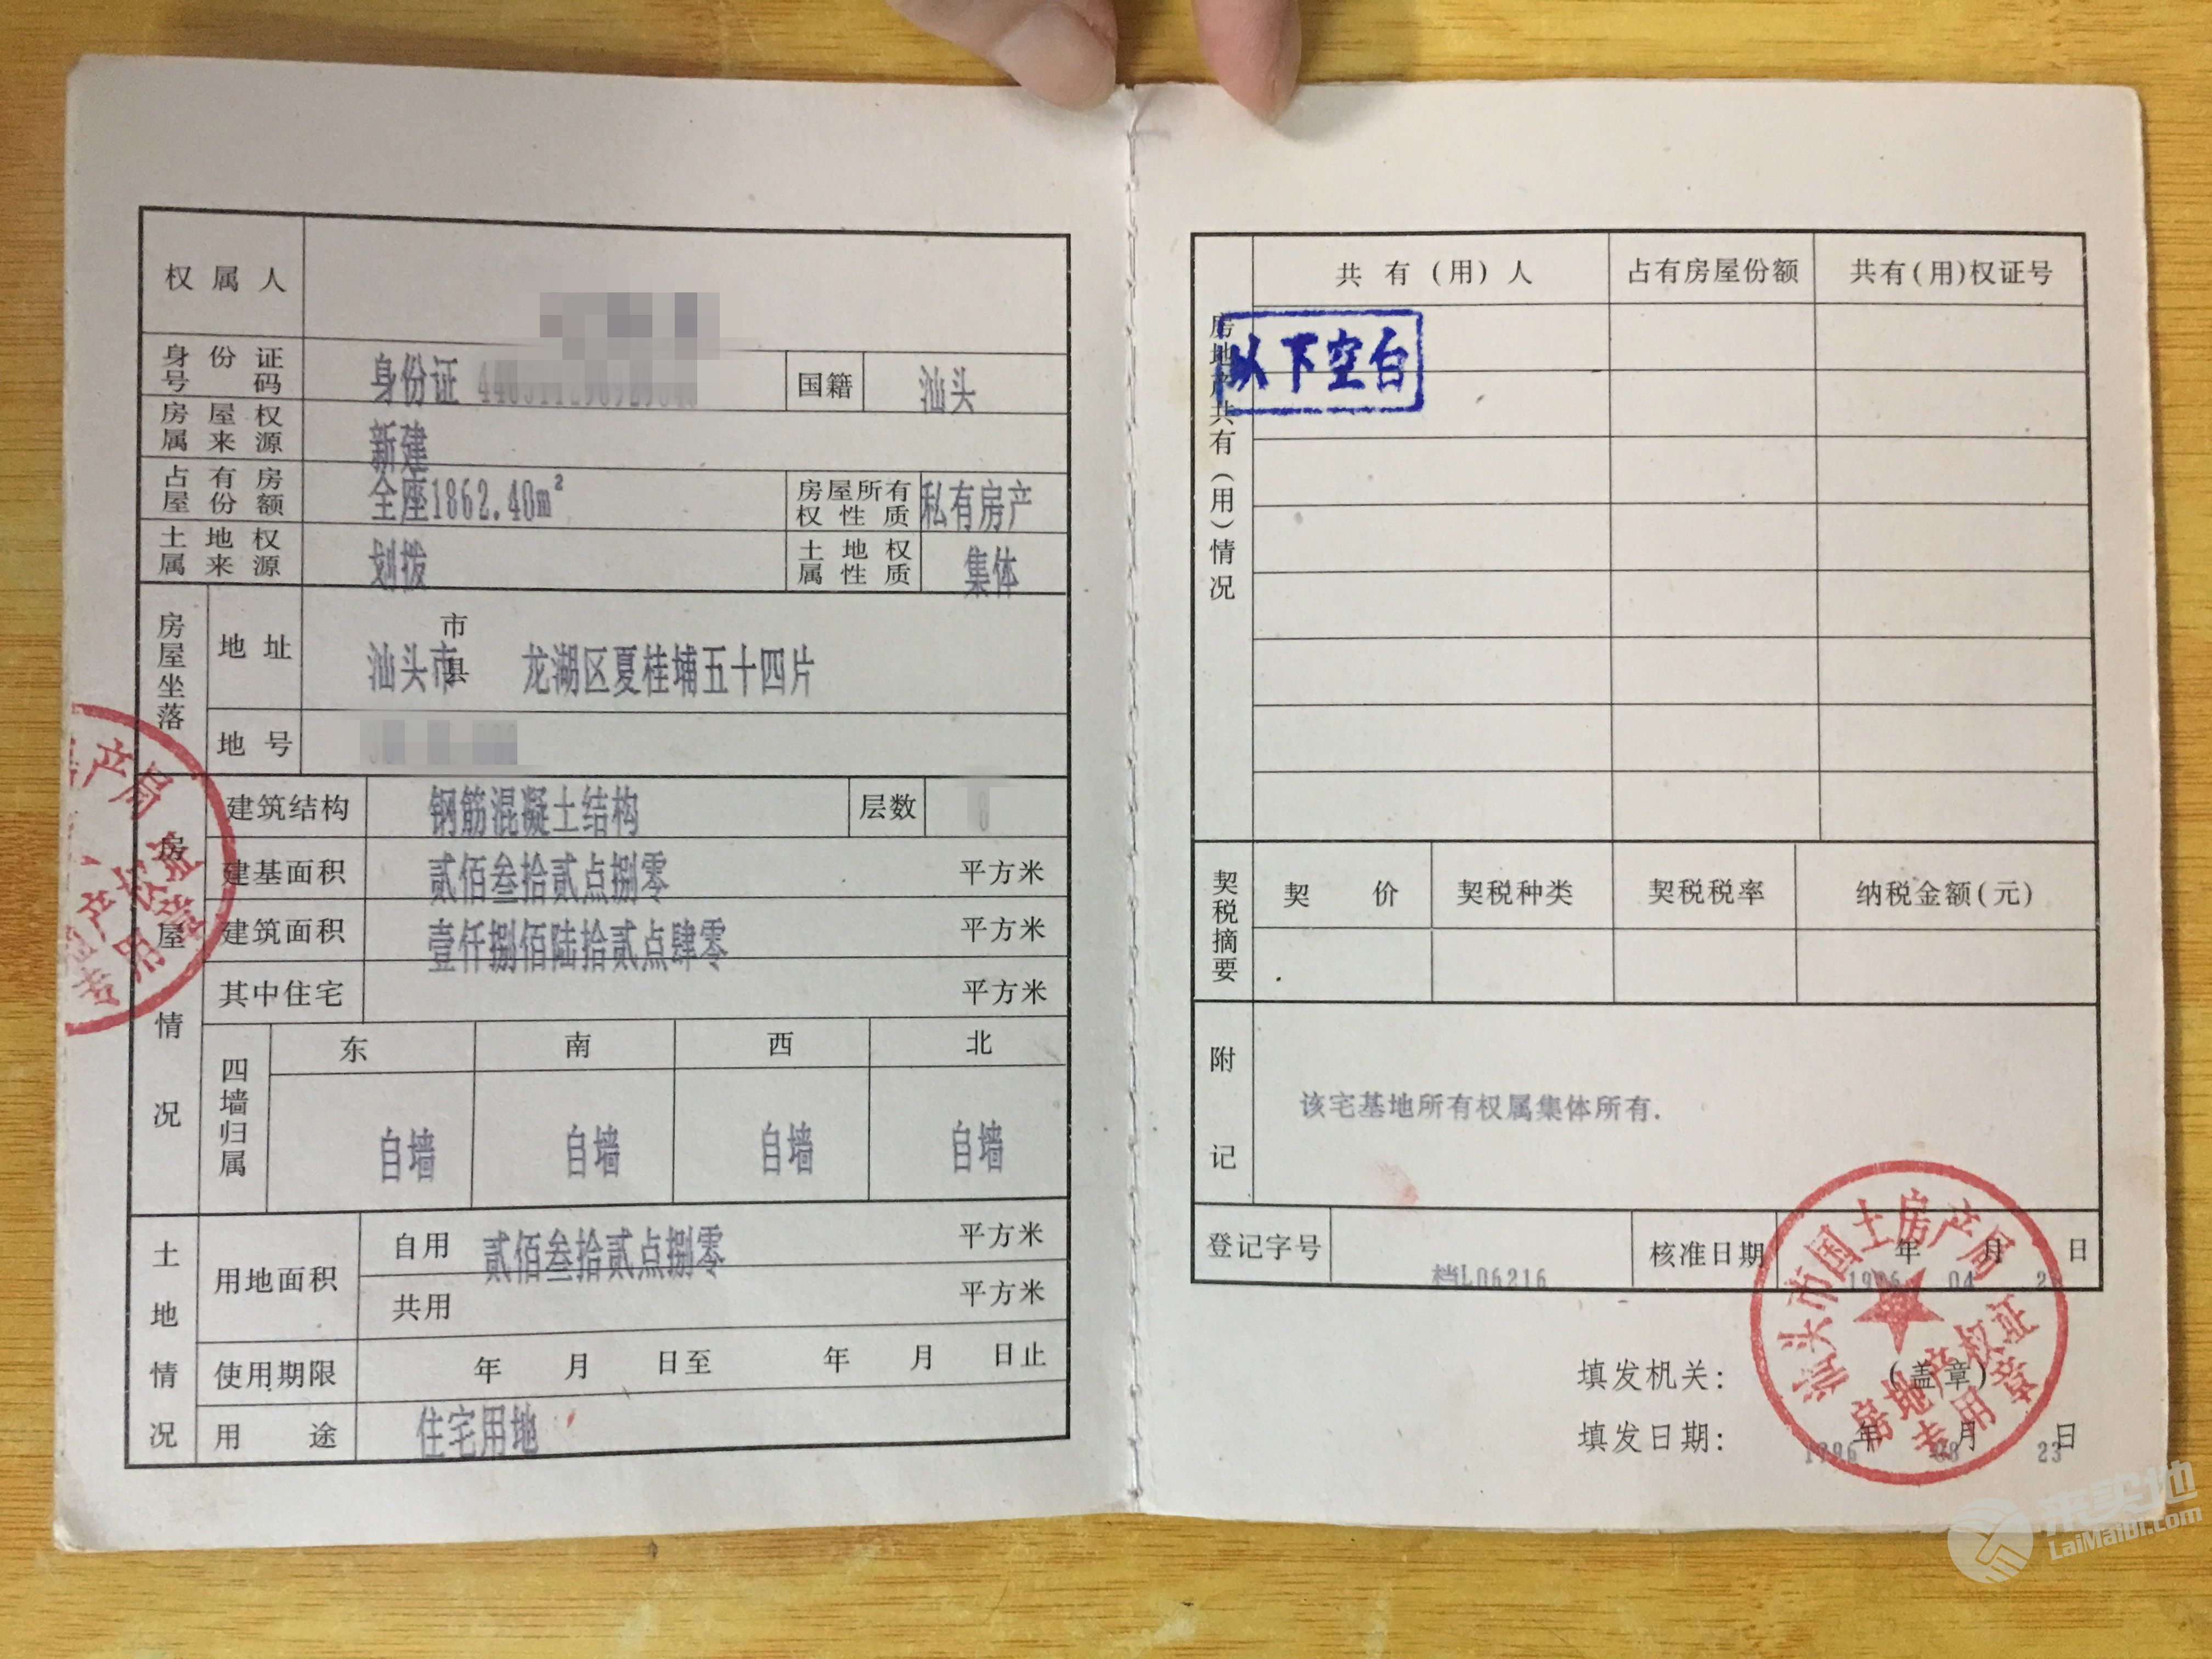 权属人
身份证号码 身份证 国籍 汕头
房屋权属来源 新建
占有房屋份额 全座1862.40m² 房屋所有权性质 私有房产
土地权属来源 划拨 土地权属性质 集体
房屋坐落 地址 汕头市 市县 龙湖区夏桂埔五十四片
地号
房屋情况
建筑结构 钢筋混凝土结构 层数 8
建基面积 贰佰叁拾贰点捌零 平方米
建筑面积 壹仟捌佰陆拾贰点肆零 平方米
其中住宅 平方米
四墙归属 东 南 西 北
自墙 自墙 自墙 自墙
土地情况
用地面积 自用 贰佰叁拾贰点捌零 平方米
共用 平方米
使用期限 年 月 日至 年 月 日止
用途 住宅用地
产局
产权证
专用章
房地产共有(用)情况
共有(用)人 占有房屋份额 共有(用)权证号
以下空白
契税摘要 契价 契税种类 契税税率 纳税金额(元)
附记
该宅基地所有权属集体所有.
登记字号 档L06216 核准日期 1996年04月 日
填发机关: (盖章)
填发日期: 1996年08月23日
汕头市国土房产局
房地产权证
专用章
来买地
LaiMaiDi.com